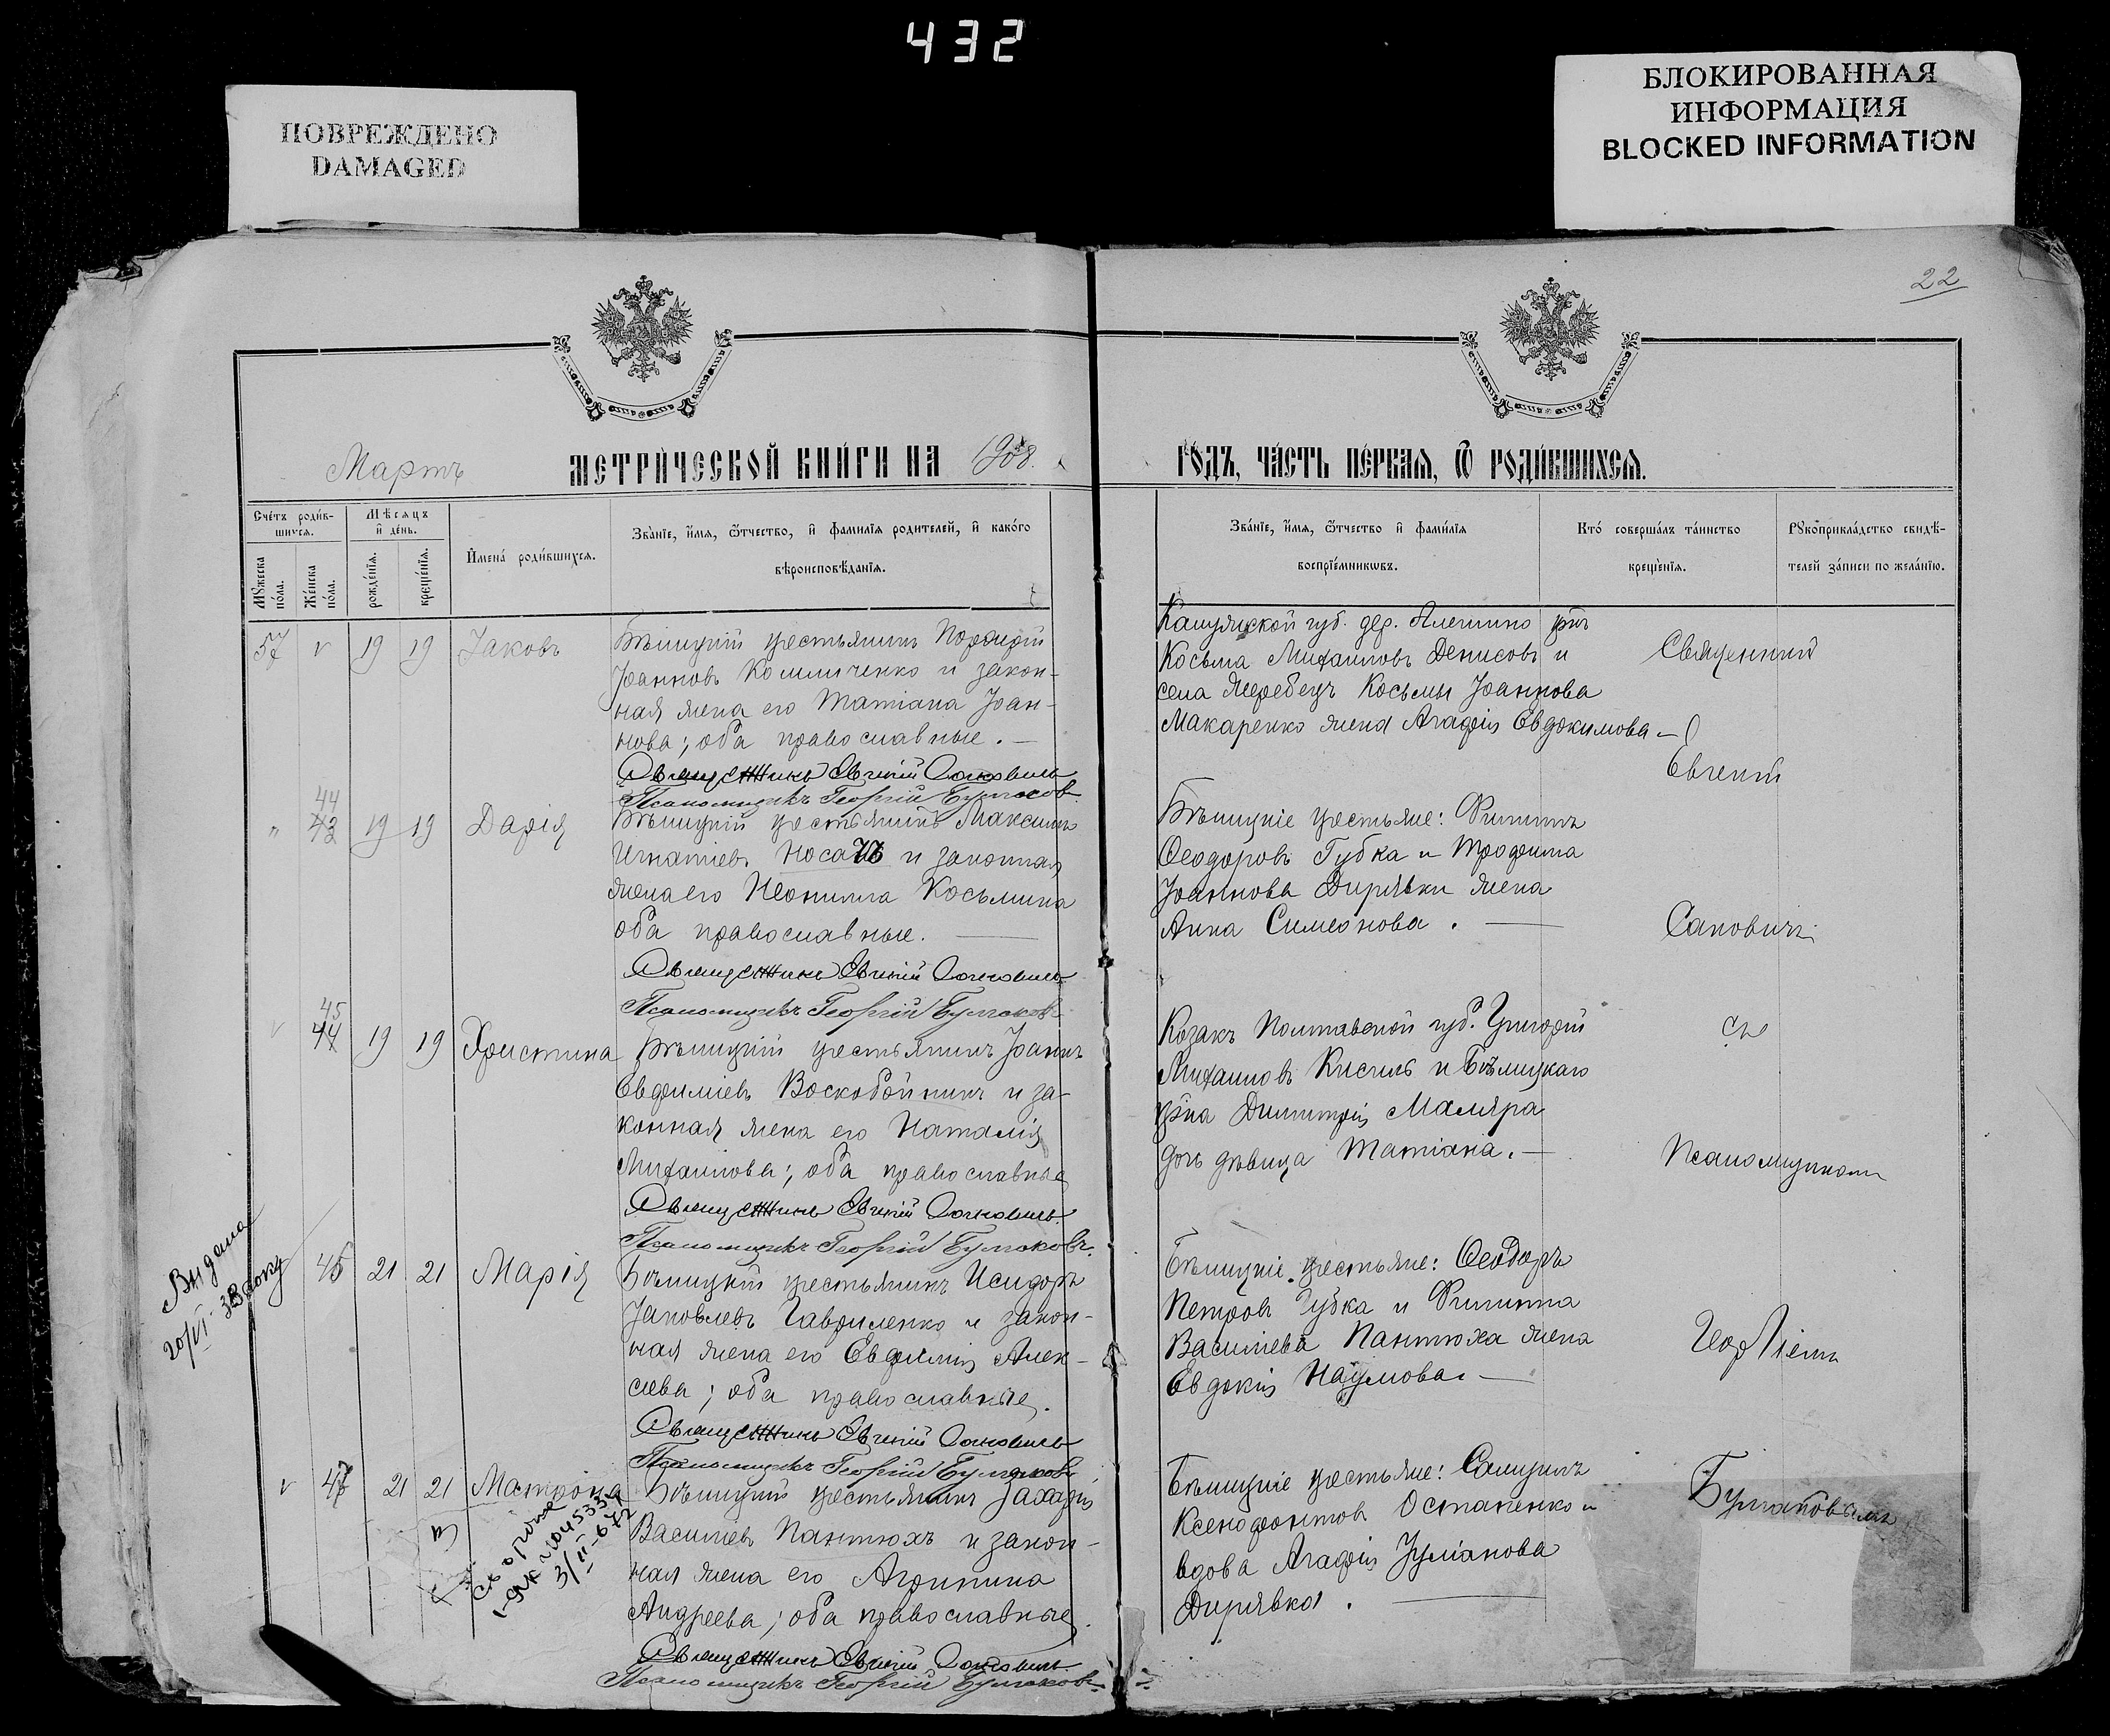 432
ПОВРЕЖДЕНО
DAMAGED
БЛОКИРОВАННАЯ
ИНФОРМАЦИЯ
BLOCKED INFORMATION
22
Мартъ
МЕТРИ́ЧЕСКОЙ КНИ́ГИ НА 1908
ГО́ДЪ, ЧА́СТЬ ПЕ́РВАЯ, Ѿ РОДИ́ВШИХСЯ.
Сче́тъ роди́вшихся.
Мѣ́сяцъ и де́нь.
Мꙋ́жеска по́ла.
Же́нска по́ла.
рожде́нїя.
креще́нїя.
Имена́ роди́вшихся.
Зва́нїе, и́мя, ѻ́тчество, и фами́лїя роди́телей, и како́го
вѣроисповѣ́данїя.
Зва́нїе, и́мя, ѻ́тчество и фами́лїя
воспрїе́мниковъ.
Кто́ соверша́лъ та́инство
креще́нїя.
Рꙋкоприкла́дство свидѣ́-
телей за́писи по жела́нїю.
57 v 19 19 Іаковъ
Бѣлицкій крестьянинъ
Іоанновъ и закон-
ная жена его Татіана Іоан-
нова; оба православные.
Священникъ Евгеній
Псаломщикъ Георгій Булгаковъ
дер. Алешино
Косьма Михаиловъ Денисовъ и
села Жеребецъ Косьмы Іоаннова
Макаренко жена Агафія Евдокимова
Священникъ
Евгеній
44
43 19 19 Дарія
Бѣлицкій крестьянинъ Максимъ
Игнатіевъ и законная
жена его Неонилла Косьмина
оба православные.
Священникъ Евгеній
Псаломщикъ Георгій Булгаковъ
Бѣлицкіе крестьяне: Филиппъ
Ѳеодоровъ Губка и Трофима
Іоаннова Дирявки жена
Анна Симеонова.
45
v 44 19 19 Христина
Бѣлицкій крестьянинъ Іоаннъ
Евфиміевъ Воскобойникъ и за-
конная жена его Наталія
Михаилова; оба православные
Священникъ Евгеній
Псаломщикъ Георгій Булгаковъ.
Козакъ Полтавской губ. Григорій
Михаиловъ и Бѣлицкаго
Димитрія Маляра
дочь дѣвица Татіана.
съ
Псаломщикомъ
Видана
45 21 21 Марія
Бѣлицкій крестьянинъ Исидоръ
Іаковлевъ Гавриленко и закон-
ная жена его Евфимія Алек-
сіева; оба православные.
Священникъ Евгеній
Псаломщикъ Георгій Булгаковъ
Бѣлицкіе крестьяне: Ѳеодоръ
Петровъ Губка и Филиппа
Василіева Пантюха жена
Евдокія Наумова.
Георгіемъ
v 47 21 21 Матрона
Бѣлицкій крестьянинъ Захарія
Василіевъ Пантюхъ и закон-
ная жена его Агрипина
Андреева; оба православные.
Священникъ Евгеній
Псаломщикъ Георгій Булгаковъ
Бѣлицкіе крестьяне:
Ксенофонтовъ Остапенко и
вдова Агафія Іуліанова
Дирявка.
Булгаковымъ